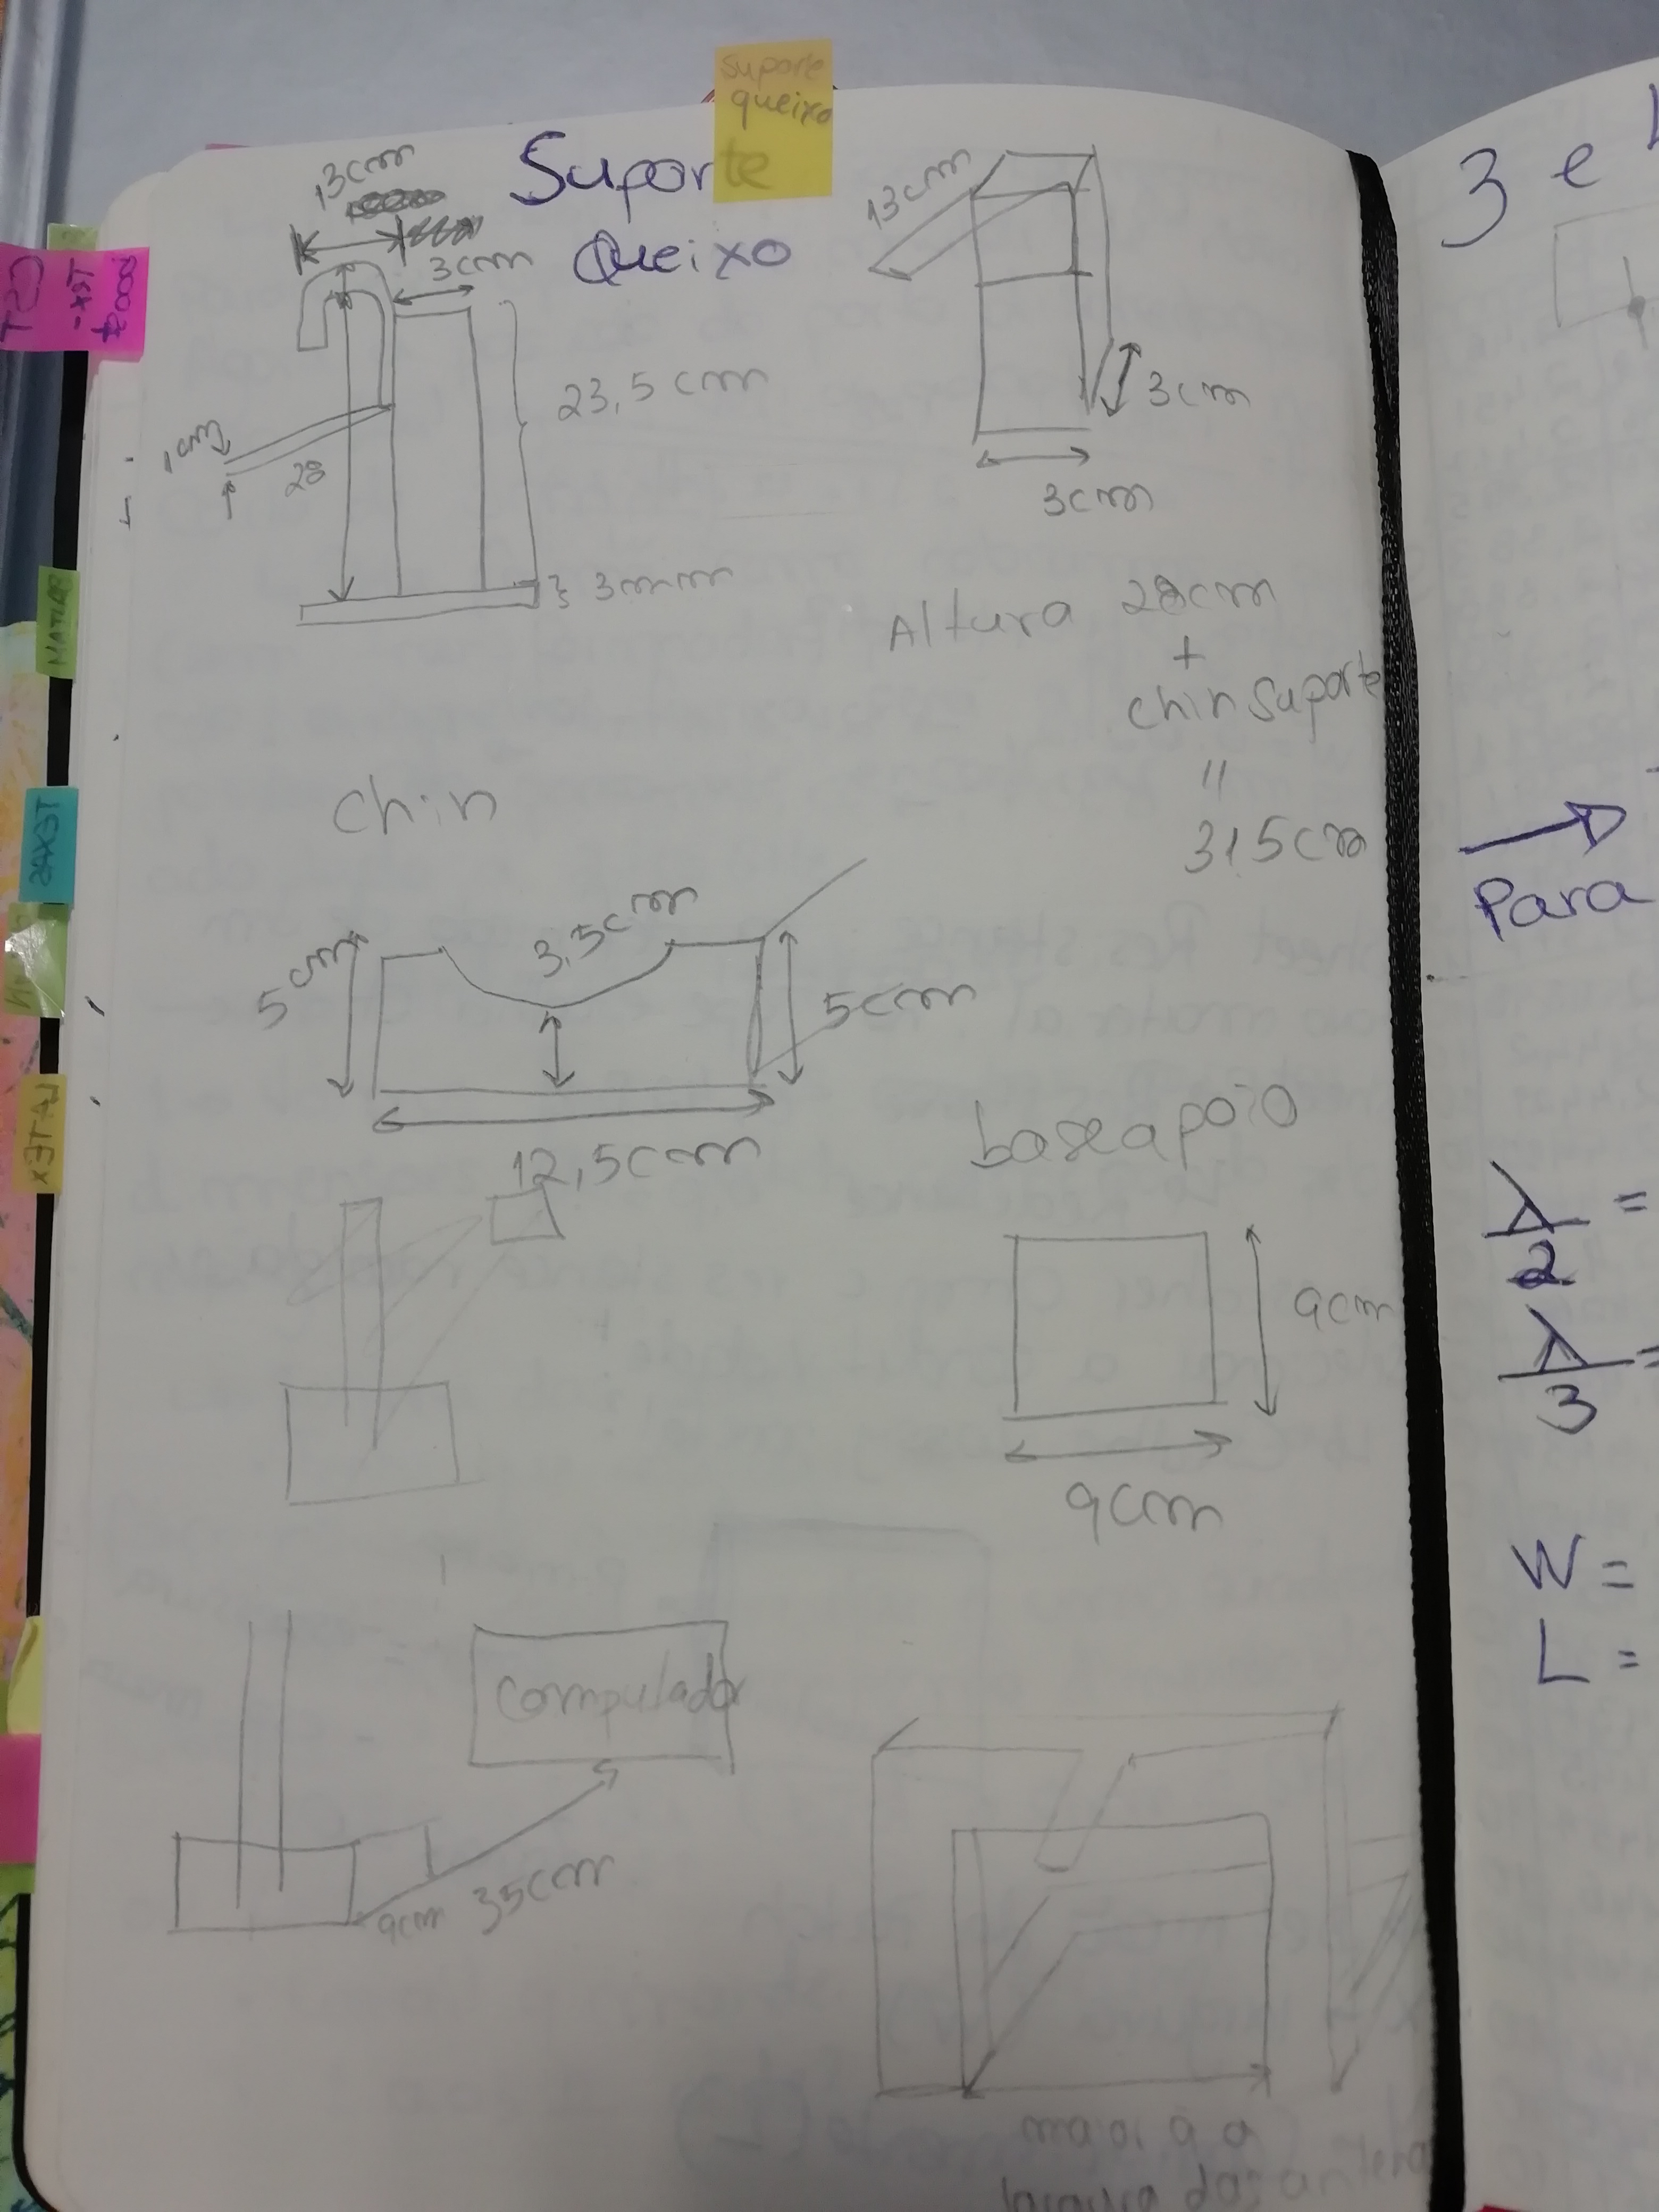 suporte
queixo
Suporte
Queixo
13cm
3cm
23,5 cm
1cm
28
3mm
13cm
3cm
3cm
Altura 28cm
+
chin suporte
=
31,5cm
chin
5cm
3,5cm
5cm
12,5cm
base apoio
9cm
9cm
computador
9cm 35cm
maior q a
largura das antena
MATLAB
TEXAS
LATEX
3 e
Para
λ/2 =
λ/3 =
W =
L =